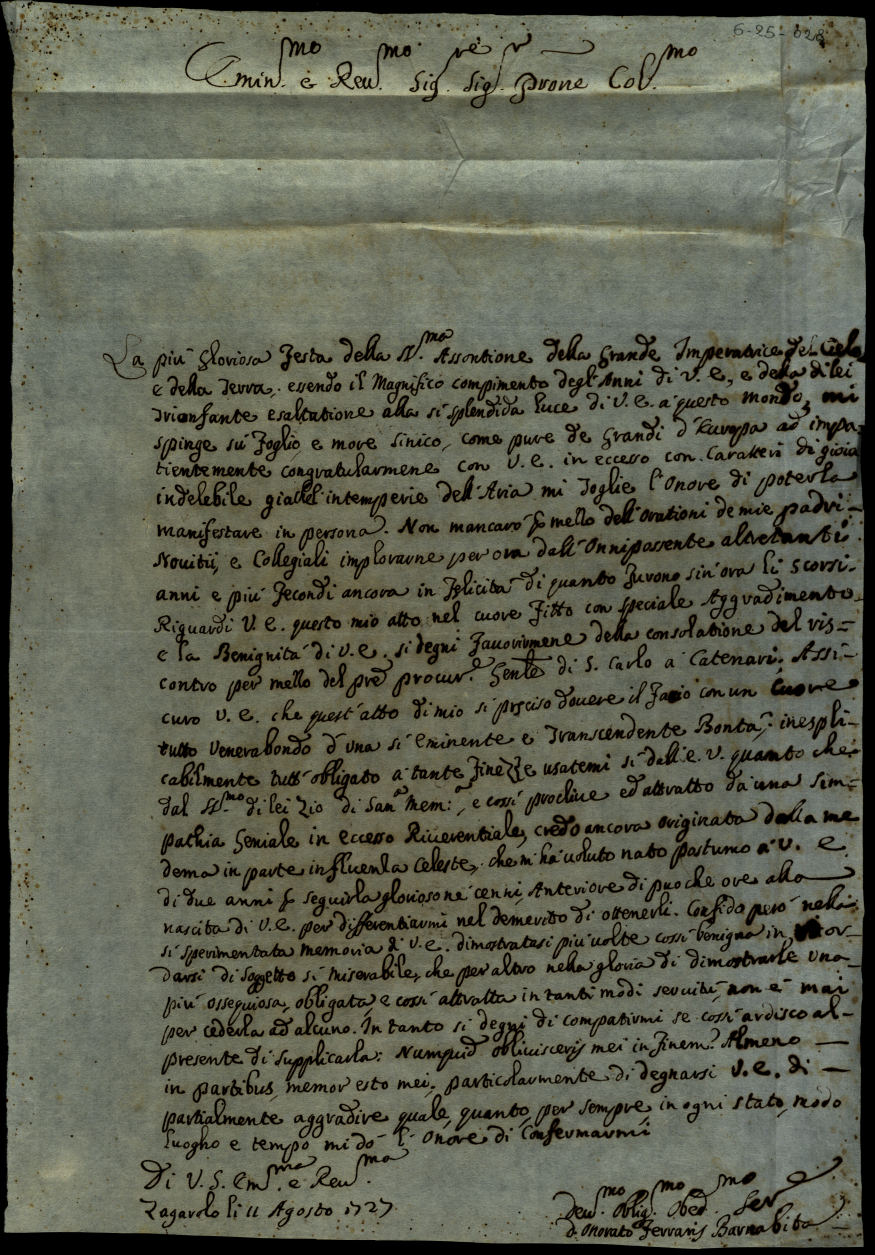 6-25-028
Emin.mo e Reu.mo Sig.re Sig.r Prone Col.mo
La più Gloriosa Festa della SS.ma Assontione della Grande Imperatrice del Cielo
e della Terra, essendo il Magnifico compimento degl'Anni di V. E., e della di lei
Trionfante esaltatione alla sì splendida luce di V. E. a questo mondo, mi
spinge su'l Foglio, e more Sinico, come pure de Grandi d'Europa ad impa-
tientemente congratularmene con V. E. in eccesso con Caratteri di gioia
indelebile giacché l'intemperie dell'Aria mi toglie l'Onore di poterla
manifestare in persona. Non mancarò per mezzo dell'Orationi de miei padri
Novitii, e Collegiali implorarne per ora dall'Onnipossente altretanti
anni e più Fecondi ancora in Felicità di quanto furono sin'ora li scorsi.
Riguardi V. E. questo mio atto nel cuore Fitto con speciale Aggradimento
e la Benignità di V. E. si degni Favorirmene della consolatione del ris-
contro per mezzo del pre procur.e Genle di S. Carlo a Catenari. Assi-
curo V. E. che quest'atto di mio sì preciso dovere il Facio con un Cuore
tutto Venerabondo d'una sì Eminente e Transcendente Bontà, inespli-
cabilmente tutt'obligato a tante Finezze usatemi sì dall'E. V. quanto che
dal SS.mo di lei Zio di San.a Mem.a, e così proclive ed attratto da una Sim-
pathia Geniale in eccesso Riverentiale, credo ancora originata dalla me
dema in parte influenza Celeste, che m'hà voluto nato postumo a V. E.
di due anni per seguirla glorioso ne cenni, Anteriore di puoche ore alla
nascita di V. E. per differentiarmi nel demerito di ottenerli. Confido però nella
sì sperimentata memoria di V. E. dimostratasi più volte così benigna in ricor-
darsi di Soggetto sì miserabile, che per altro nella gloria di dimostrarle una
più ossequiosa, obligata, e così attratta in tanti modi servitù, non è mai
per cederla ad alcuno. In tanto si degni di compatirmi se così ardisco al
presente di supplicarla: Numquid oblivisceris mei in Finem? Almeno
in partibus, memor esto mei, particolarmente di degnarsi V. E. di
partialmente aggradire quale, quanto, per sempre, in ogni stato, modo
luogho e tempo mi dò l'Onore di Confermarmi
Di V. S. Em.ma e Reu.ma
Zagarolo li 11 Agosto 1727
Deu.mo Oblig.mo Obed.mo Ser.e
d. Onorato Ferraris Barnabita